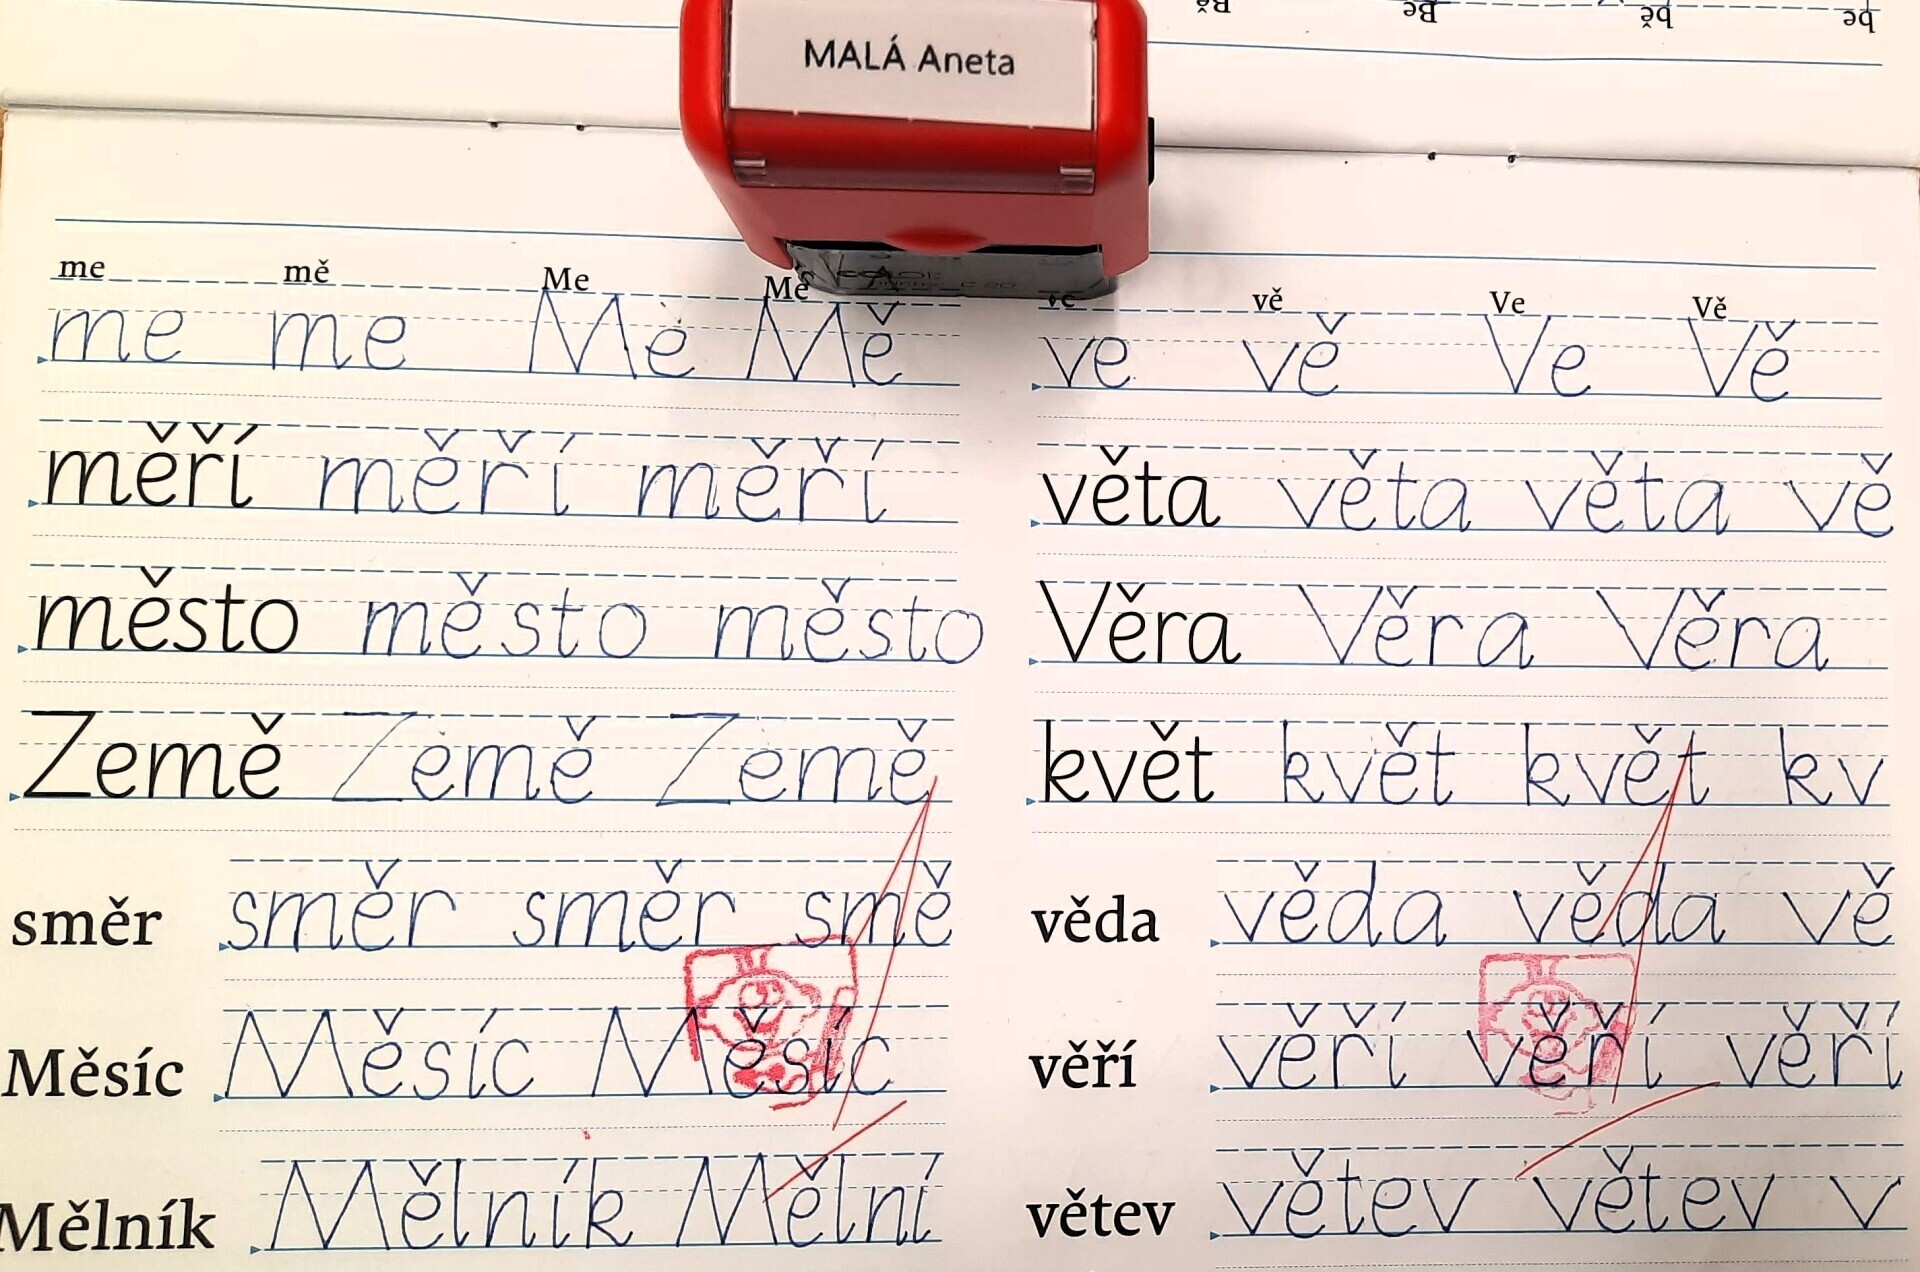 MALÁ Aneta
me mě Me Mě
me me Me Mě
měří měří měří
město město město
Země Země Země
směr směr směr smě
Měsíc Měsíc Měsíc
Mělník Mělník Mělní
vě Ve Vě
ve vě Ve Vě
věta věta věta vě
Věra Věra Věra
květ květ květ kv
věda věda věda vě
věří věří věří věří
větev větev větev v